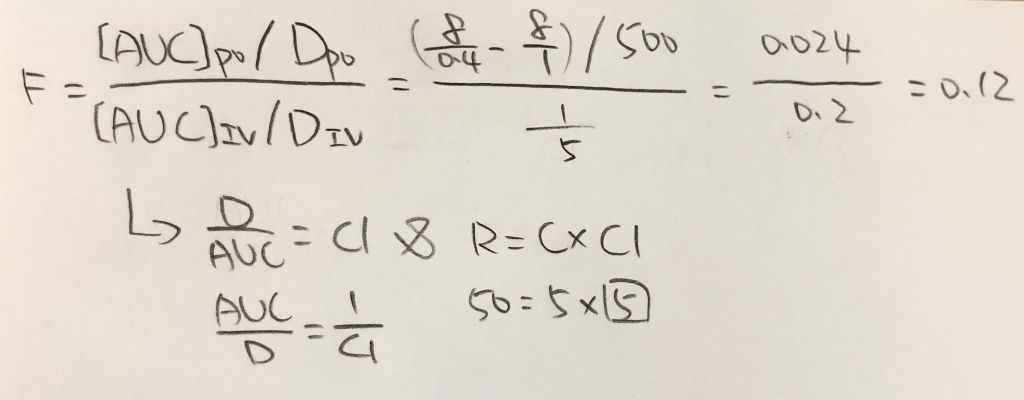 F = [AUC]po / Dpo / [AUC]IV / DIV = (8/0.4 - 8/1) / 500 / 1/5 = 0.024 / 0.2 = 0.12
↳ D/AUC = Cl & R = C × Cl
AUC/D = 1/Cl 50 = 5 × 5